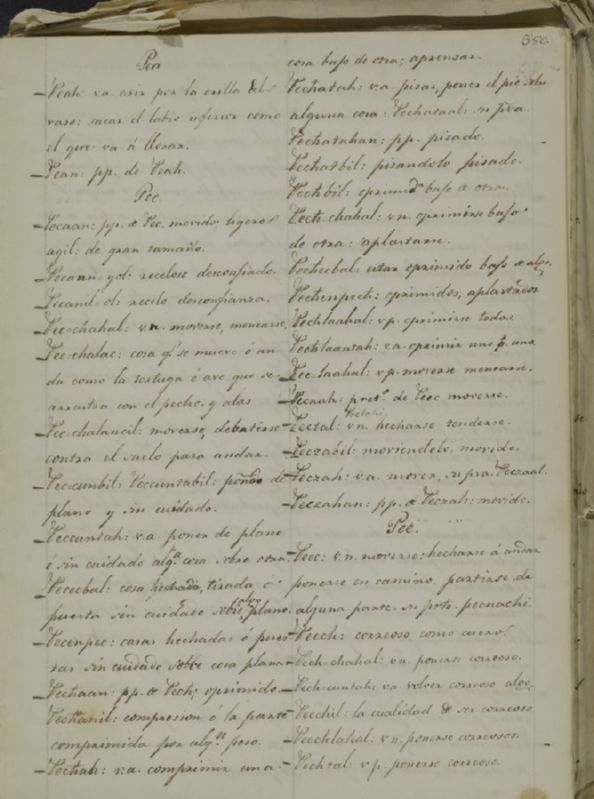 380.
Pea
Peah: v.a. asir por la orilla del
vaso: sacar el labio inferior como
el que va á llorar.
Pean: pp. de Peah.
Pec
Pecaan: pp. de Pec. movido; ligero
agil: de gran tamaño.
Pecaan yol: receloso desconfiado.
Pecanil ol: recelo desconfianza.
Pec-chahal: v.n. moverse, menearse,
Pec-chalac: cosa q.e se mueve ó an-
da como la tortuga ó ave que se
arrastra con el pecho y alas
Pec chalancil: moverse, debatirse
contra el suelo para andar.
Peccunbil: Peccuntabil: de
plano y sin cuidado.
Peccuntah: v.a. poner de plano
ó sin cuidado alg.a cosa sobre otra.
Pececbal: cosa hechada, tirada ó
puesta sin cuidado sobre plano.
Pecenpec: cosas hechadas ó pues-
tas sin cuidado sobre cosa plana
Pechaan: pp. de Pech; oprimido.
Pechanil: compression ó la parte
comprimida por alg.n peso.
Pechah: v.a. comprimir una
cosa bajo de otra; aprensar.
Pechatah: v.a. pisar, poner el pie sobre
alguna cosa: Pechataal: su pva.
Pechatahan: pp. pisado.
Pechatbil: pisandolo pisado.
Pechbil: bajo de otra.
Pech-chahal: v.n. oprimirse bajo
de otra: aplastarse.
Pechecbal: estar oprimido bajo de algo.
Pechenpech: oprimidos, aplastados
Pechlaahal: v.p. oprimirse todos.
Pechlaantah: v.a. oprimir uno p. uno.
Pec-laahal: v.p. moverse menearse.
Pecnah: pret.o de Peec moverse.
Pectal: v.n. hecharse tenderse.
Peczabil: moviendolo movido.
Peczah: v.a. mover, su pva. Peczaal.
Peczahan: pp. de Peczah: movido.
Pee.
Peec: v.n. moverse: hecharse á andar
ponerse en camino, partirse de
alguna parte. su prto. pecnahi.
Peech: correoso, como cuero.
Pech-chahal: v.n. ponerse correoso.
Pech-cuntah: va volver correoso algo.
Peechil: la cualidad de ser correoso
Peechlahal: v.n. ponerse correosos.
Pechtal: v.p. ponerse correoso.